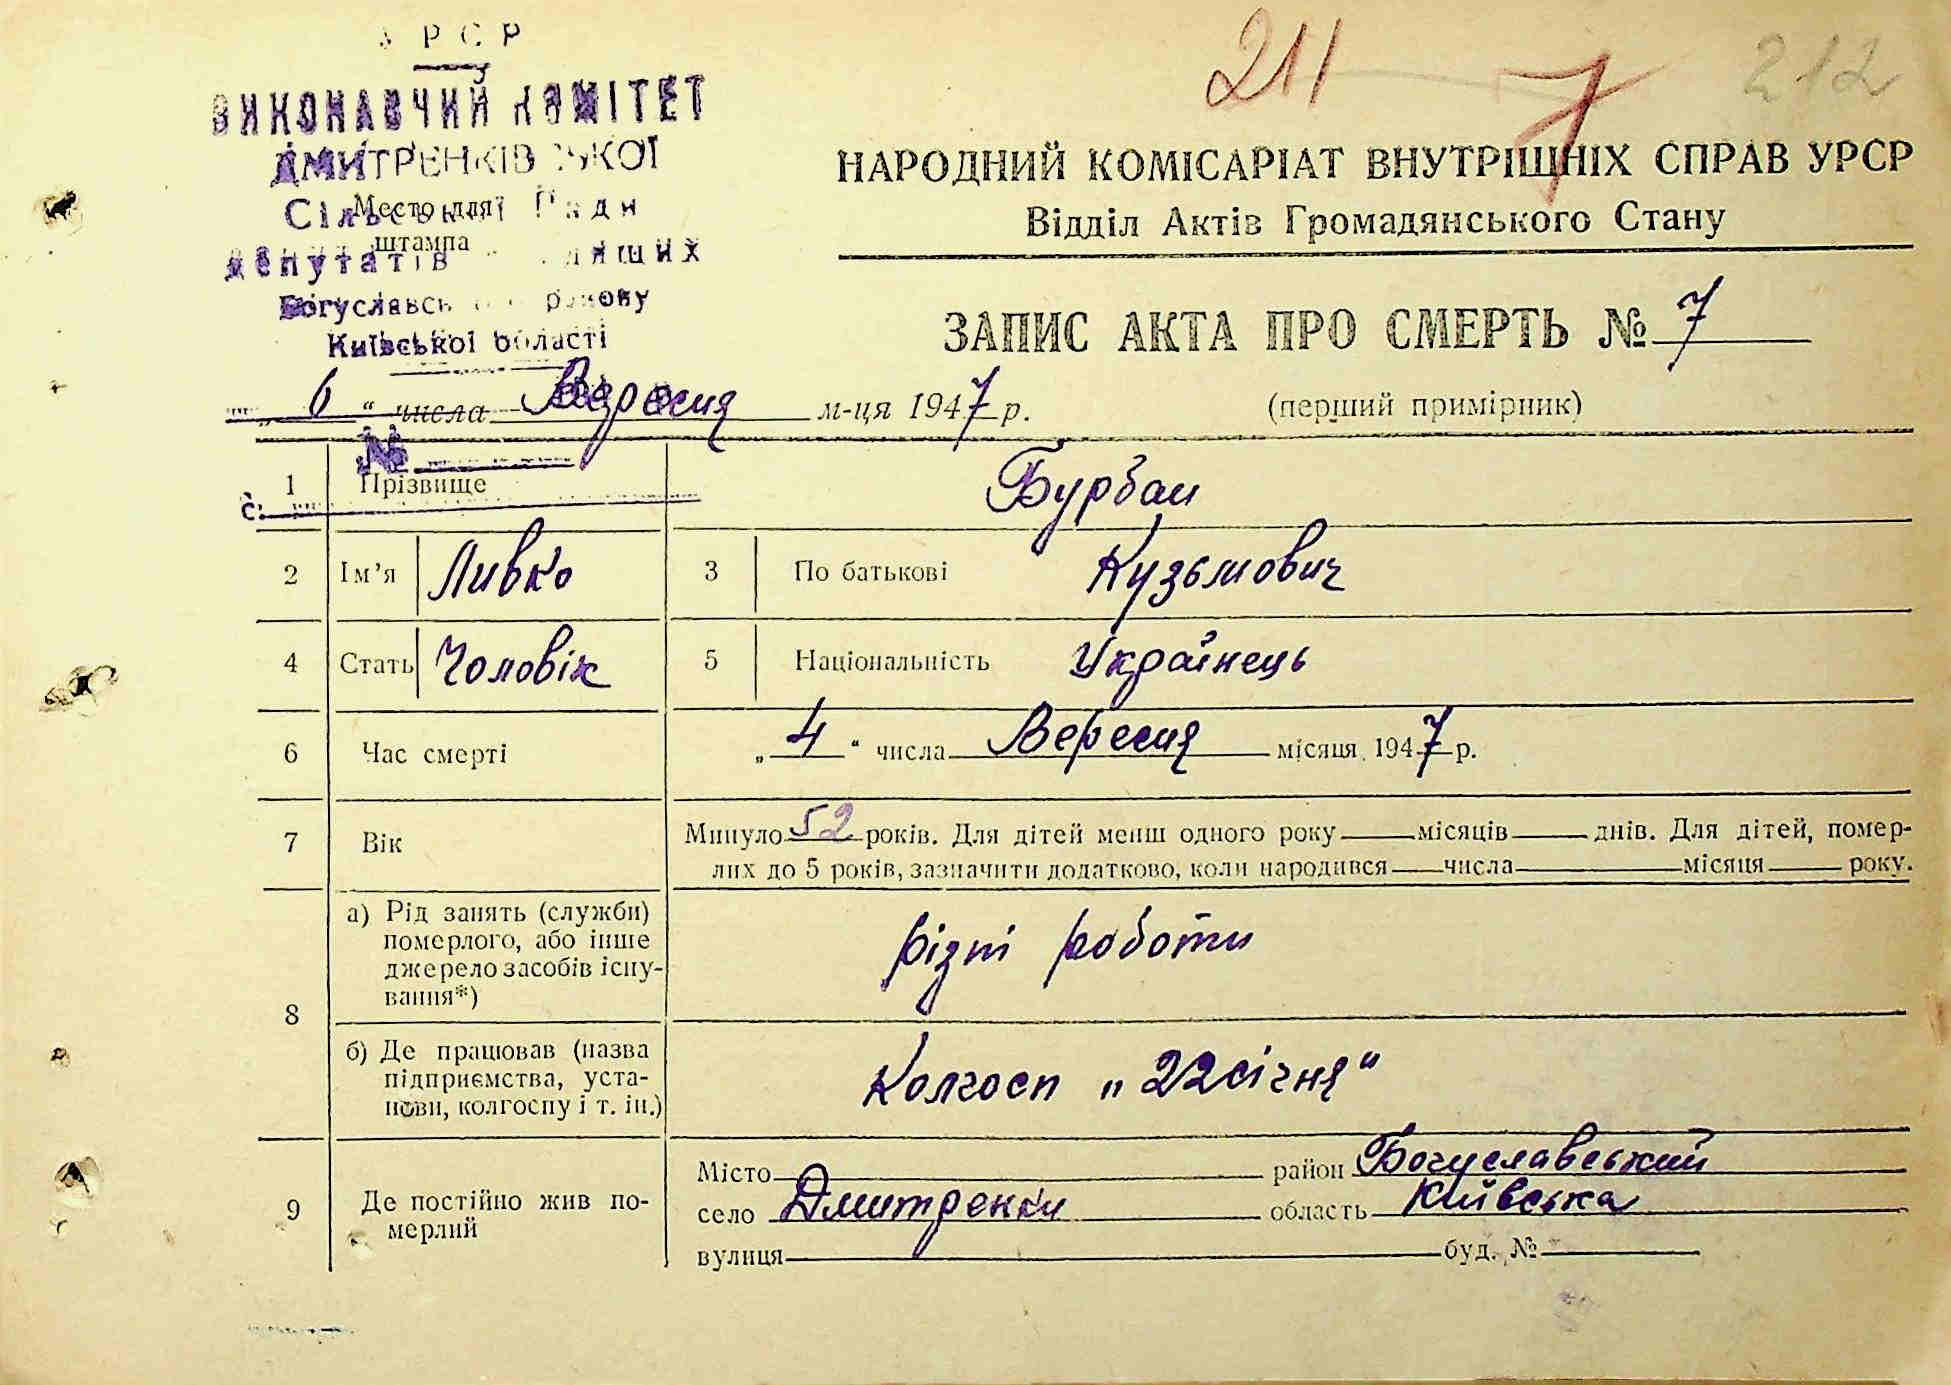 УРСР
ВИКОНАВЧИЙ КОМІТЕТ
ДМИТРЕНКІВСЬКОЇ
Сільської Ради
Место для
штампа
депутатів трудящих
Богуславського району
Київської області
№
211
7
212
НАРОДНИЙ КОМІСАРІАТ ВНУТРІШНІХ СПРАВ УРСР
Відділ Актів Громадянського Стану
ЗАПИС АКТА ПРО СМЕРТЬ № 7
„ 6 “ числа Вересня м-ця 1947 р.
(перший примірник)
1 Прізвище Бурбан
2 Ім’я Ливко 3 По батькові Кузьмович
4 Стать Чоловік 5 Національність Українець
6 Час смерті „ 4 “ числа Вересня місяця 1947 р.
7 Вік Минуло 52 років. Для дітей менш одного року місяців днів. Для дітей, помер-
лих до 5 років, зазначити додатково, коли народився числа місяця року.
8 а) Рід занять (служби)
померлого, або інше
джерело засобів існу-
вання*)
різні роботи
б) Де працював (назва
підприємства, уста-
нови, колгоспу і т. ін.)
Колгосп „22 січня“
9 Де постійно жив по-
мерлий
Місто район Богуславський
село Дмитренки область Київська
вулиця буд. №